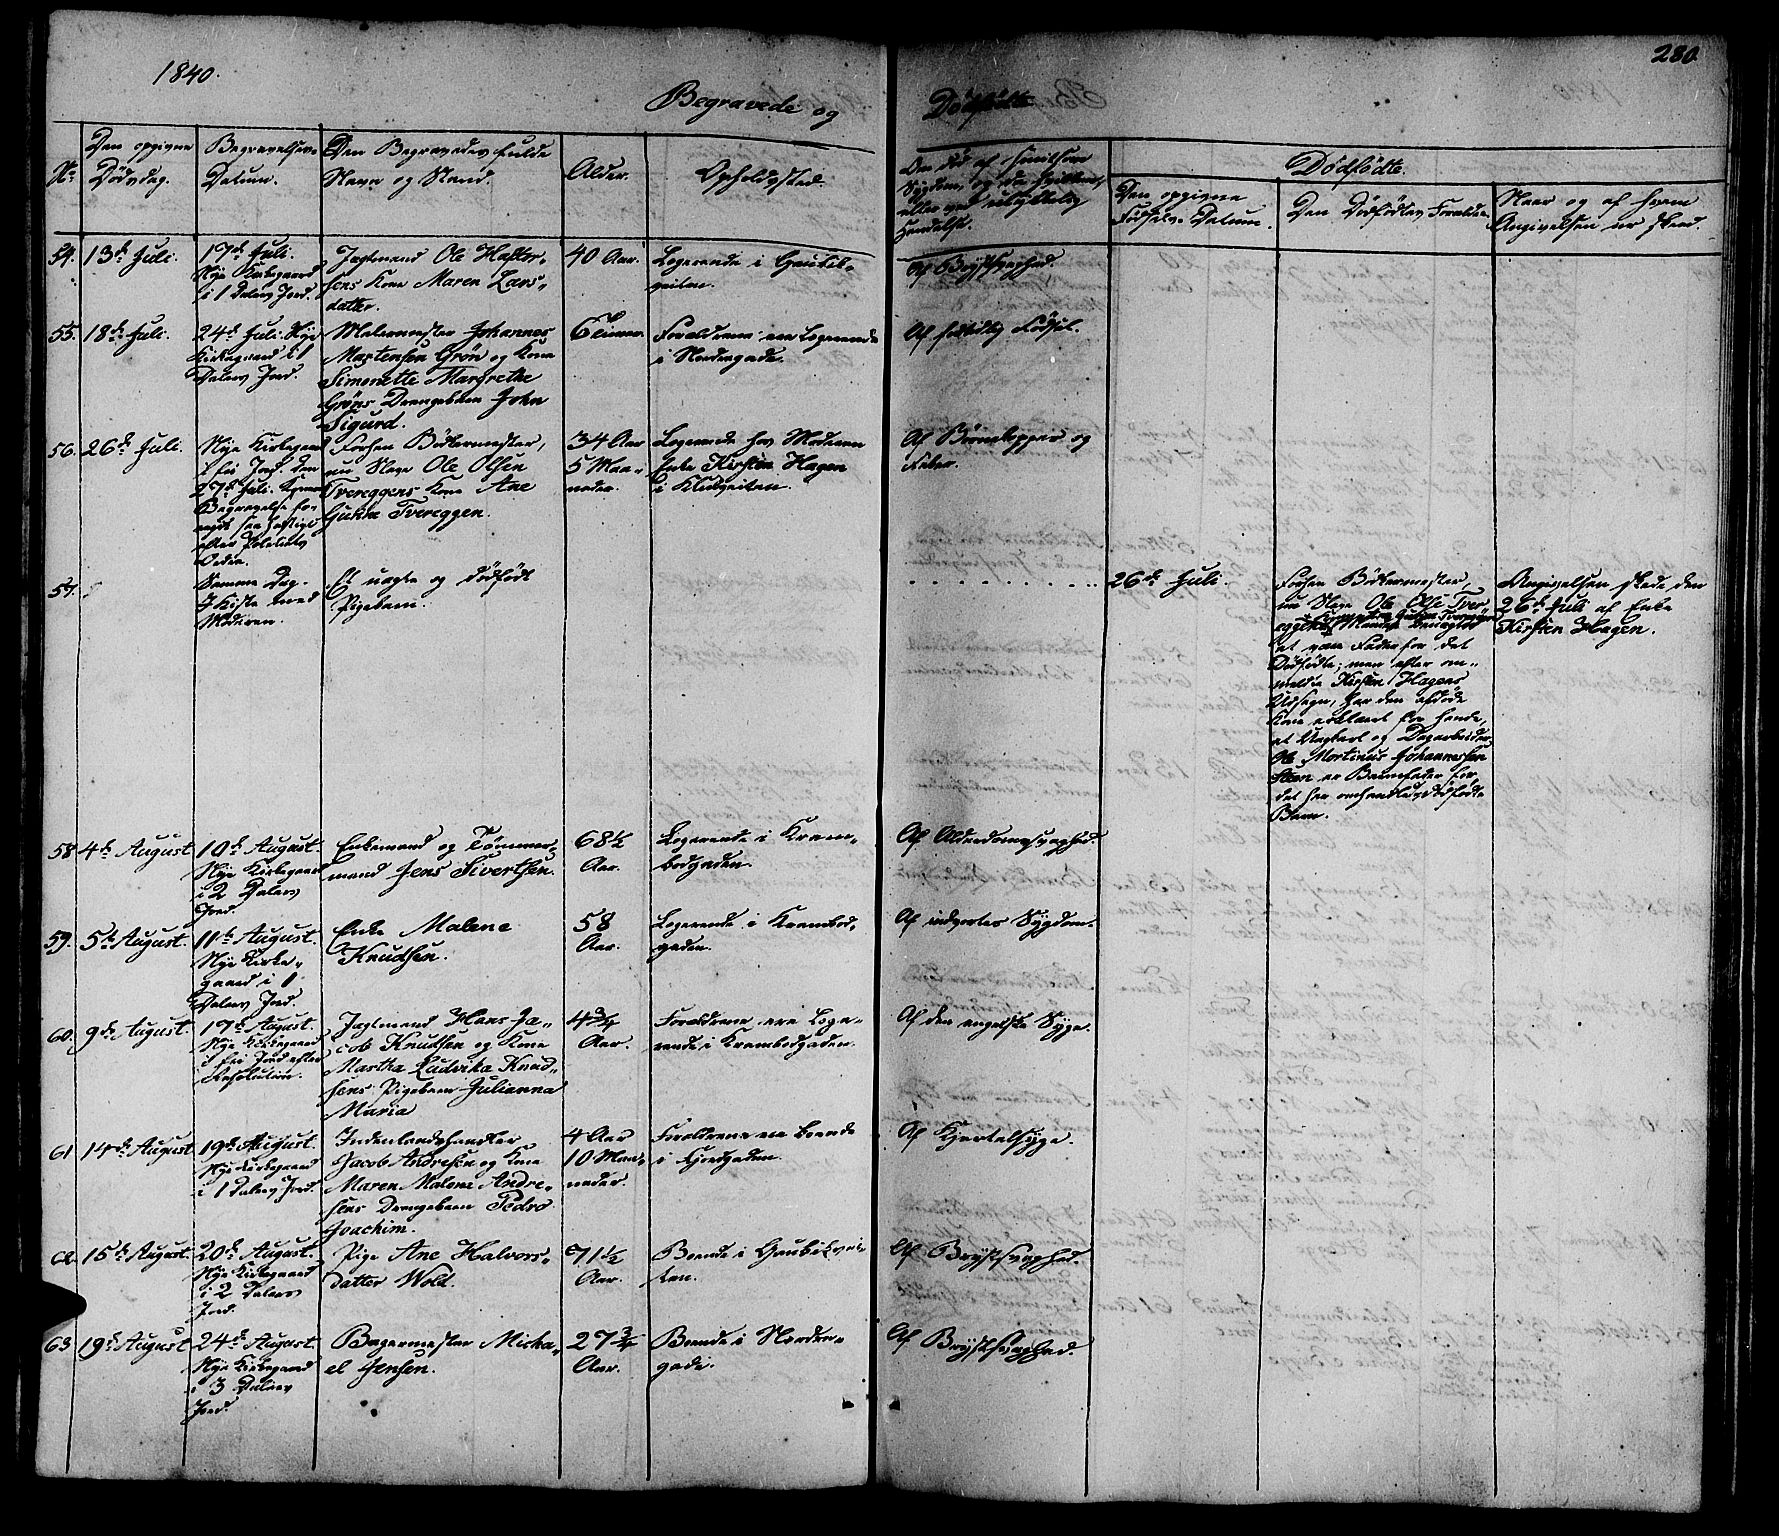 1840.
280.
Begravede og
Dødfødte
No
Den opgivne
Dødsdag.
Begravelses-
Datum.
Den Begravedes fulde
Navn og Stand.
Alder.
Opholdssted.
Død af smitsom
Sygdom,
eller ved ulykkelig
Hændelse.
Dødfødte.
Den opgivne
Fødsels-Datum.
Den Dødfødtes Forældre.
Naar og af hvem
Angivelsen er skeed.
54.
13de Juli.
17de Juli.
Nye Kirkegaard
i 1 Dalers Jord.
Jagtmand Ole
sens Kone Maren Lars-
datter.
40 Aar.
Logerende i
veiten.
Af Brystsvaghed.
55.
18de Juli.
24de Juli. Nye
Kirkegaard i 1
Dalers Jord.
Malermester Johannes
Mortensen Grøn og Kone
Simonette Margrethe
Grøns Drengebarn John
Sigurd.
6 Timer.
Forældrene ere Logerende
i Nordregade.
Af Fødsel.
56.
26de Juli.
Nye Kirkegaard
i fri Jord. den
27de Juli.
Begravelse
efter Politiets
Ordre.
Forhen Bødkermester,
nu Slave Ole Olsen
Tvereggens Kone Ane
Gurine Tvereggen.
34 Aar
5 Maa-
neder.
Logerende hos Moderen
Enke Kirsten Hagen
i Klubveiten.
Af Børnekopper og
Feber.
57.
Samme Dag.
I Kiste med
Moderen.
Et uægte og dødfødt
Pigebarn.
26de Juli.
Forhen Bødkermester,
nu Slave Ole Olse Tver-
eggen
at være Fader for det
Dødfødte; men efter om-
meldte Kirsten Hagens
Udsagn, har den afdøde
Kone erklæret for hende,
at Ungkarl og Dagarbeider
Ole Martinus Johannessen
Steen er Barnefader for
det her omhandlede dødfødte
Barn.
Angivelsen skede den
26de Juli af Enke
Kirsten Hagen.
58
4de August
10de August.
Nye Kirkegaard
i 2 Dalers
Jord.
Enkemand og Tømmer-
mand Jens Sivertsen.
68½
Aar.
Logerende i Kram-
bodgaden.
Af Alderdomssvaghed.
59.
5te August.
11te August.
Nye Kirke-
gaard i 1
Dalers Jord.
Enke Malene
Knudsen.
58
Aar.
Logerende i Krambod-
gaden.
Af indvortes Sygdom.
60.
9de August.
17de August.
Nye Kirkegaard
i fri Jord efter
Resolution.
Jagtmand Hans Ja-
cob Knudsen og Kone
Martha Ludvika Knud-
sens Pigebarn Julianna
Maria
4¾
Aar.
Forældrene ere Loge-
rende i Krambodgaden.
Af den engelske Syge.
61
14de August
19de August.
Nye Kirkegaard
i 1 Dalers Jord.
Indenlandshandler
Jacob Andresen og Kone
Maren Malene Andre-
sens Drengebarn Pedro
Joachim.
4 Aar
10 Maa-
neder.
Forældrene ere Boende
i Fjordgaden.
Af Kjertelsyge.
62.
15de August.
20de August.
Nye Kirkegaard
i 2 Dalers
Jord.
Pige Ane Halvors-
datter Wold.
71½
Aar.
Boende i Gaubækvei-
ten.
Af Brystsvaghed.
63
19de August
24de August.
Nye Kirkegaard
i 3 Dalers
Jord.
Bagermester Micha-
el Jensen.
27¾
Aar.
Boende i Nordre-
gade.
Af Brystsvaghed.